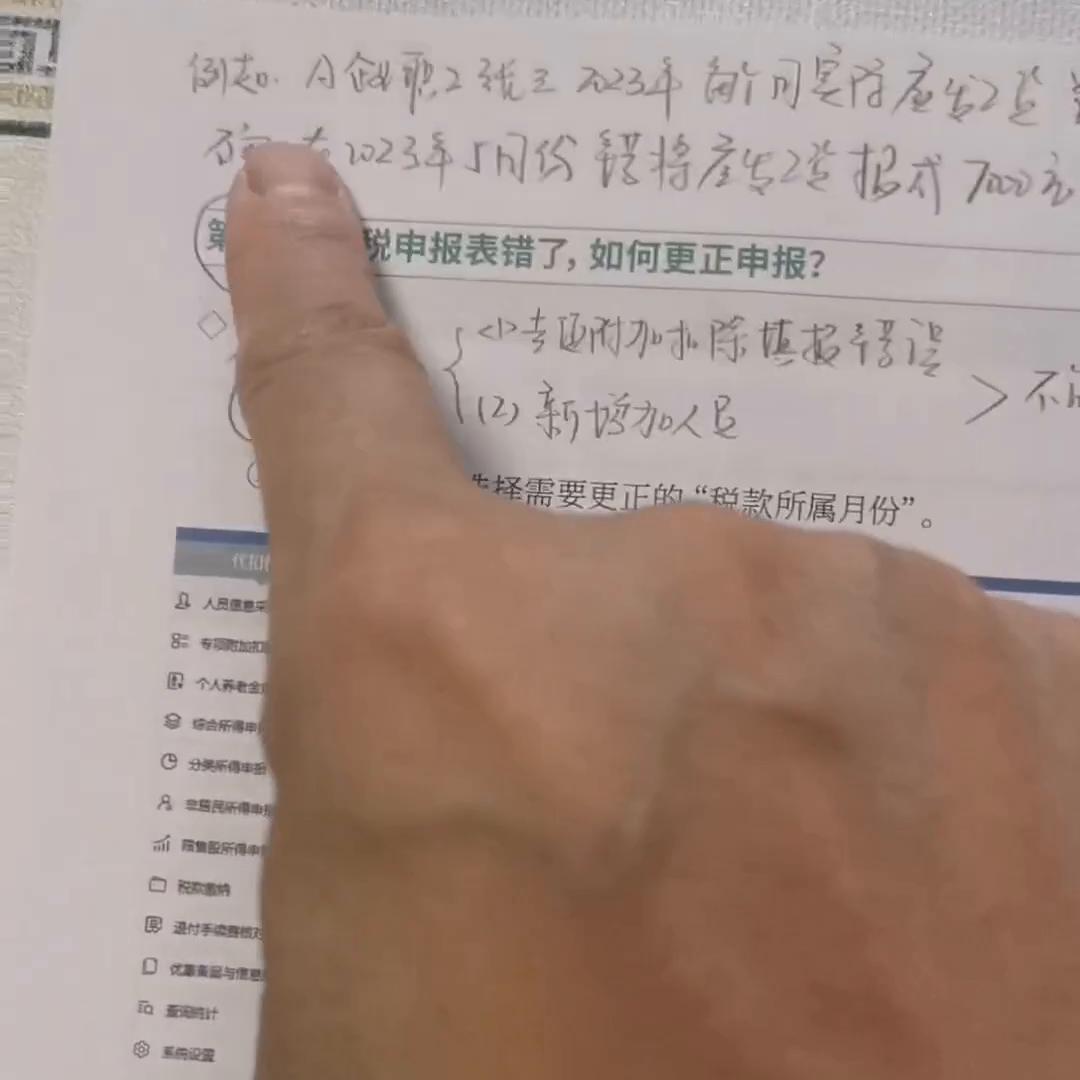 例如. A企业职工张三 2023年 每个月实际应发工资
2023年5月份 错将应发工资 报成 7000元
第 税申报表错了，如何更正申报？
<1>专项附加扣除填报错误
(2) 新增加人员
> 不
选择需要更正的“税款所属月份”。
代扣
人员信息采
专项附加扣
个人养老金
综合所得申
分类所得申报
非居民所得申报
限售股所得申
税款缴纳
退付手续费核对
优惠备案与信息
查询统计
系统设置